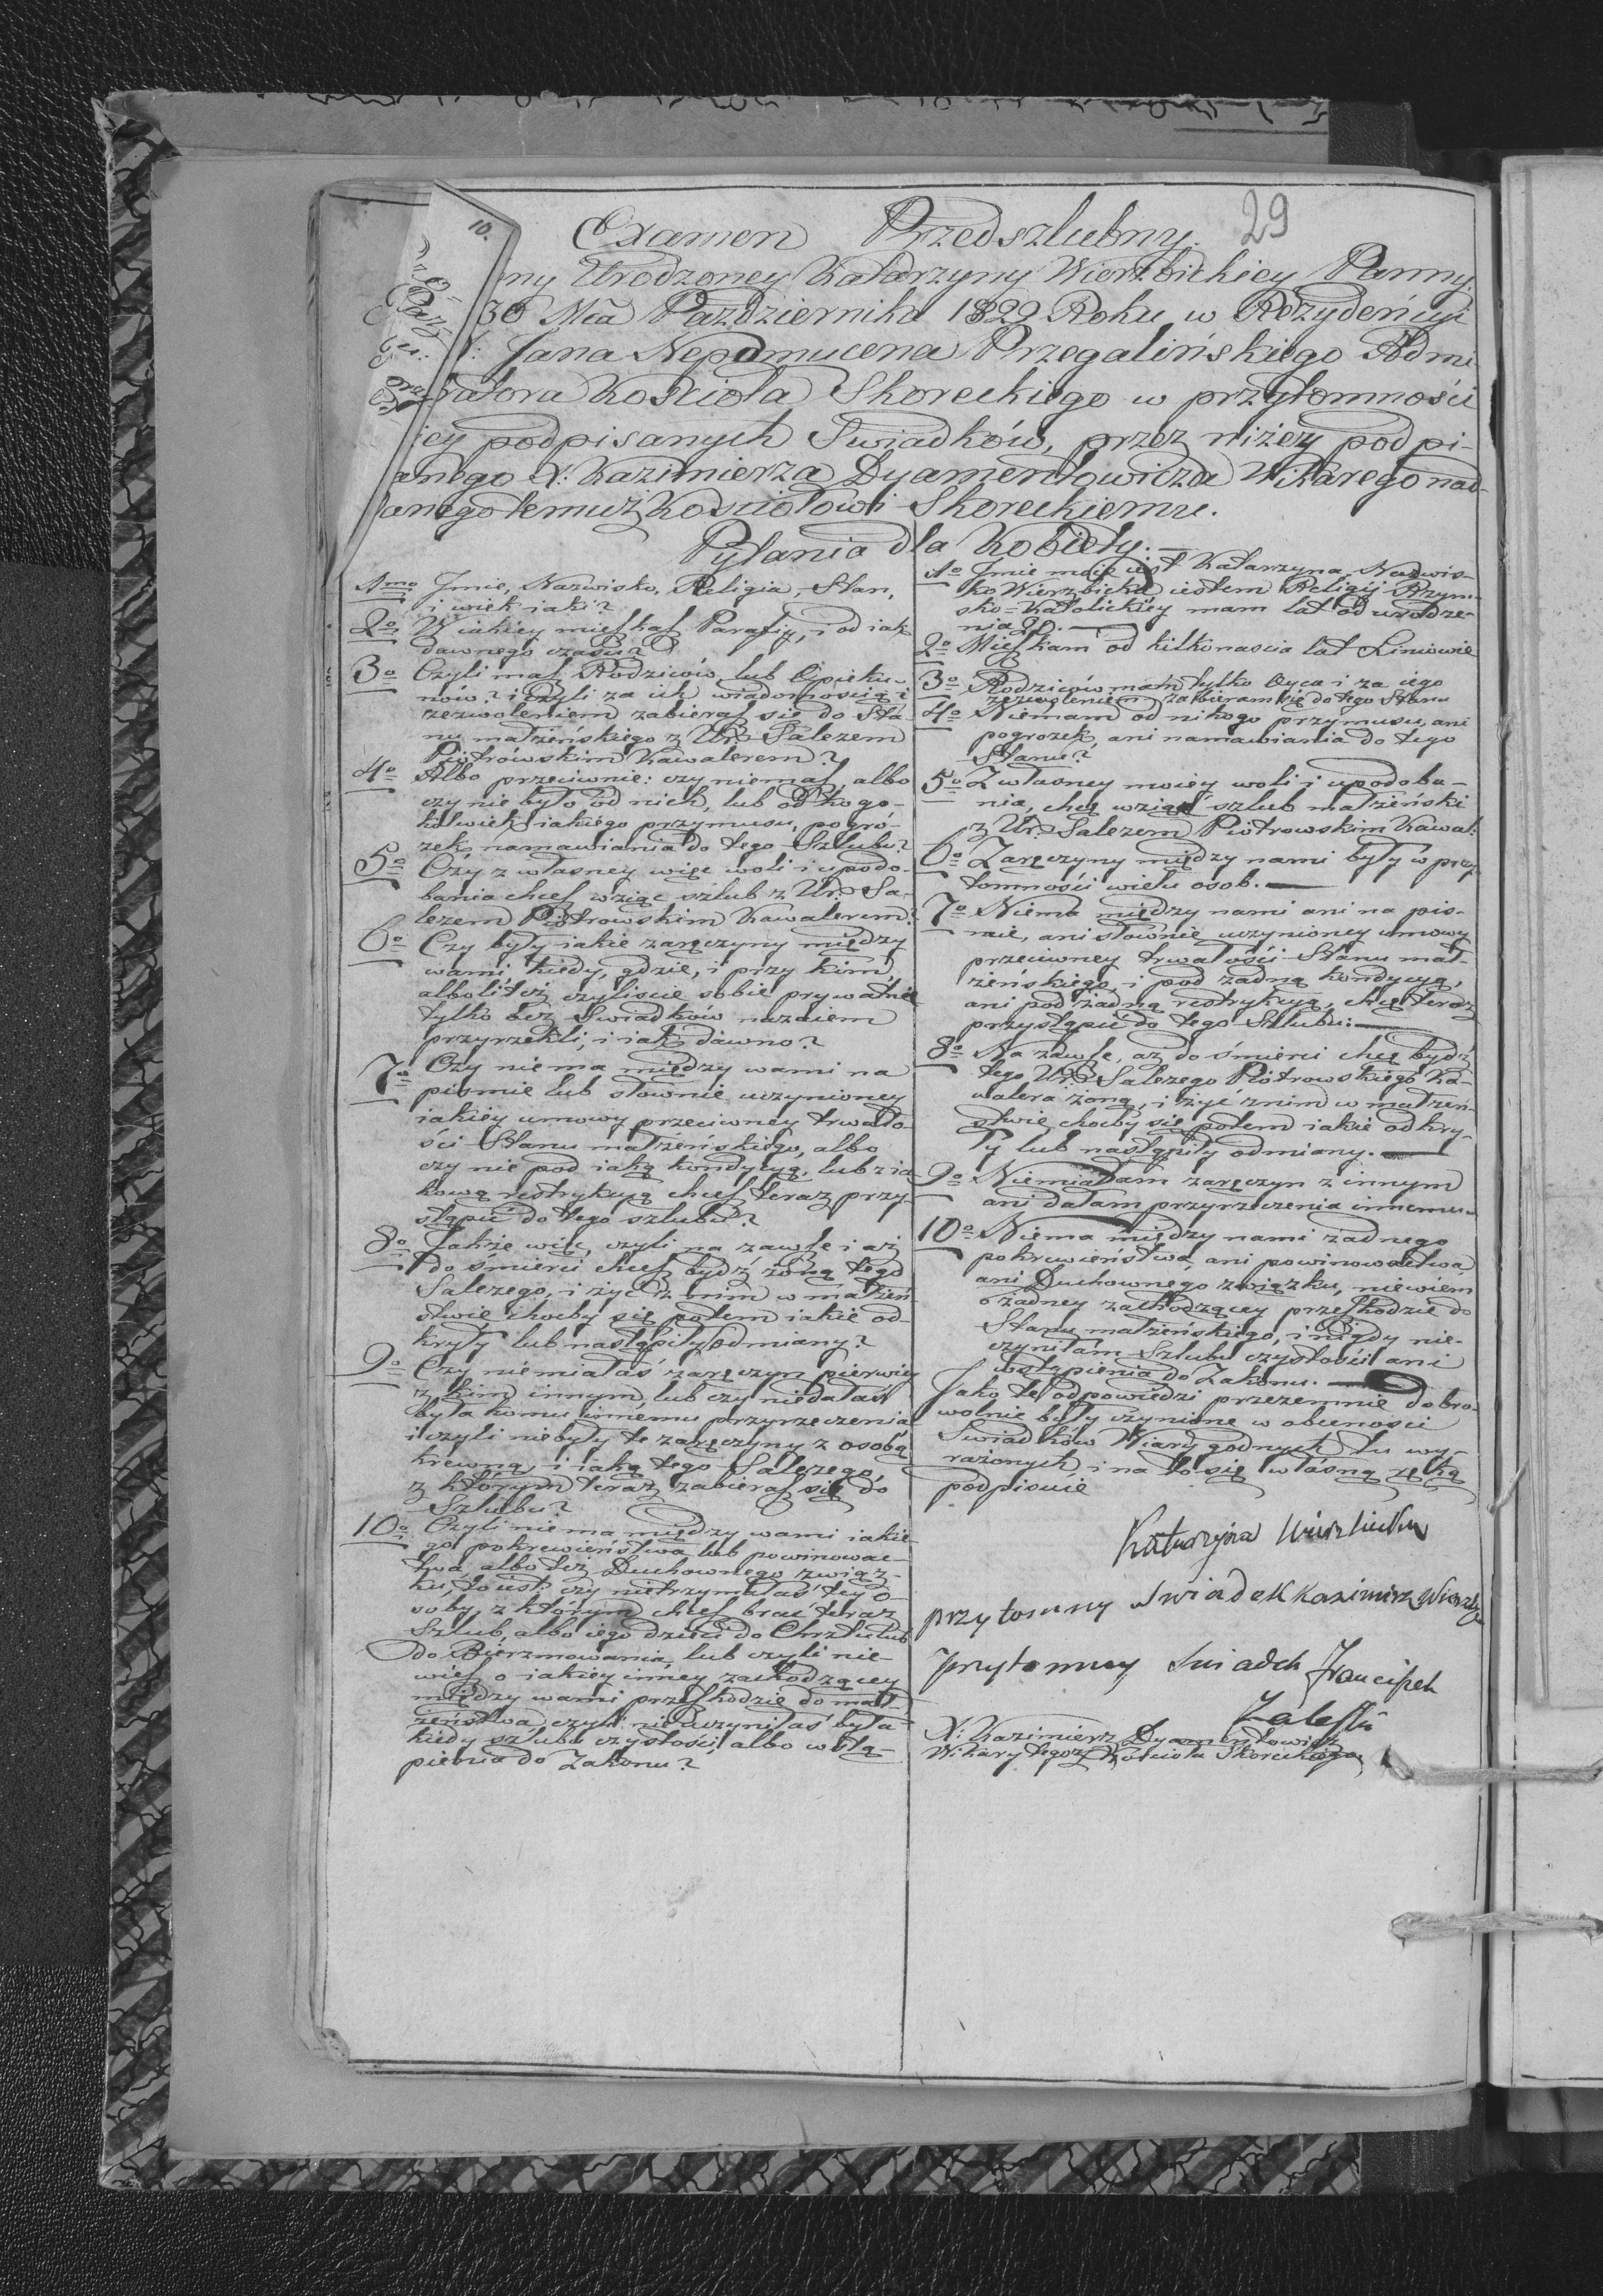 29
10.
Examen Przedszlubny.
ny Urodzoney Katarzyny Wierzbickiey Panny.
30 Mca Pazdziernika 1829 Roku w Rezydencyi
X: Jana Nepomucena Przegalińskiego Admi
ratora Kościoła Skoreckiego w przytomności
icy podpisanych Swiadków, przez niżey podpi-
anego X: Kazimierza Dyamentowicza Wikarego nad-
anego temuż Kościołowi Skoreckiemu.
Pytania dla Kobiety.
1mo Jmie, Nazwisko, Religia, Stan,
i wiek iaki?
2o W iakiey mieszkasz Parafij, i od iak
dawnego czasu?
3o Czyli masz Rodziców, lub Opieku-
nów? i czyli za ich wiadomością i
zezwoleniem zabierasz się do Sta-
nu małżeńskiego z Ur. Salezem
Piotrówskim Kawalerem?
4o Albo przeciwnie: czy niemasz, albo
czy nie było od nich, lub od kogo-
kolwiek iakiego przymusu, pogró-
zek, namawiania do tego Szlubu?
5o Czy z własney więc woli i upodo-
bania chcesz wziąć szlub z Ur. Sa-
lezem Piotrowskim Kawalerem?
6o Czy były iakie zaręczyny między
wami, kiedy, gdzie, i przy kim,
albolitéż czyliscie sobie prywatnie
tylko bez Swiadków nazaiem
przyrzekli, i iak dawno?
7o Czy nie ma między wami na
pismie lub słownie uczynioney
iakiéy umowy przeciwney trwało-
ści Stanu małżeńskiego, albo
czy nie pod iaką kondycyą, lub z ia
kową restrykcyą chcesz teraz przy-
stąpić do tego szlubu?
8o Jakże więc, czyli na zawsze i aż
do śmierci chcesz bydź żoną tego
Salezego, i żyć z nim w małżeń
stwie, choćby się potem iakie od-
kryły lub nastąpiły odmiany?
9o Czy niemiałaś zaręczyn pierwiéy
z kim innym, lub czy niedałaś
była komu innemu przyrzeczenia
i czyli niebyły te zaręczyny z osobą
krewną, i iaką tego Salezego,
z którym teraz zabierasz się do
Szlubu?
10o Czyli nie ma między wami iakie-
go pokrewieństwa lub powinowac-
twa, albo téż Duchownego związ-
ku, to iest: czy nietrzymałaś tey o-
soby z którym chcesz brać teraz
Szlub, albo iego dzieci do Chrztu lub
do Bierzmowania, lub czyli nie
wiesz o iakiey inney zachodzącey
między wami przeszkodzie do małż
żeństwa, czyli nieuczyniłaś była
kiedy szlubu czystości, albo wstą-
pienia do Zakonu?
1o Jmie moje iest Katarzyna Nazwis-
ko Wierzbicka iestem Religij Rzym-
sko-Katolickiéy mam lat od urodze-
nia
2o Mieszkam od kilkonascia lat Liniowie
3o Rodziców mam tylko Oyca i za iego
zezwoleniem zabieram się do tego Stanu
4o Niemam od nikogo przymusu, ani
pogrozek, ani namawiania do tego
Stanu?
5o Z własney moiéy woli i upodoba-
nia, chcę wziąść szlub małżeński
z Ur. Salezem Piotrowskim Kawal:
6o Zaręczyny między nami były w przy
tomności wielu osob.
7o Niema między nami ani na pis-
mie, ani słownie uczynioney umowy
przeciwney trwałości Stanu mał-
żeńskiego, i pod żadną kondycyą,
ani pod żadną restrykcyą, chcę teraz
przystąpić do tego Szlubu:
8o Na zawsze, aż do śmierci chcę bydź
tego Ur. Salezego Piotrowskiego Ka-
walera żoną, i żyć z nim w małżeń-
stwie choćby się potem iakie odkry-
ły lub nastąpiły odmiany.
9o Niemiałam zaręczyn z innym
ani dałam przyrzeczenia innemu
10o Niema między nami żadnego
pokrewieństwa, ani powinowactwa
ani Duchownego związku, niewiem
o żadney zachodzącey przeszkodzie do
Stanu małżeńskiego, i nigdy nie-
czyniłam Szlubu czystości ani
wstąpienia do Zakonu.
Jako te odpowiedzi przezemnie dobro-
wolnie były czynione w obecności
Swiadków Wiary godnych tu wy-
rażonych i na to się własną ręką
podpisuię
Katarzyna Wierzbicka
przytomny Swiadek Kazimirz
przytomny Swiadek Franciszek
Zaleski
X: Kazimierz Dyamentowicz
Wikary tegoż Kościoła Skoreckiego